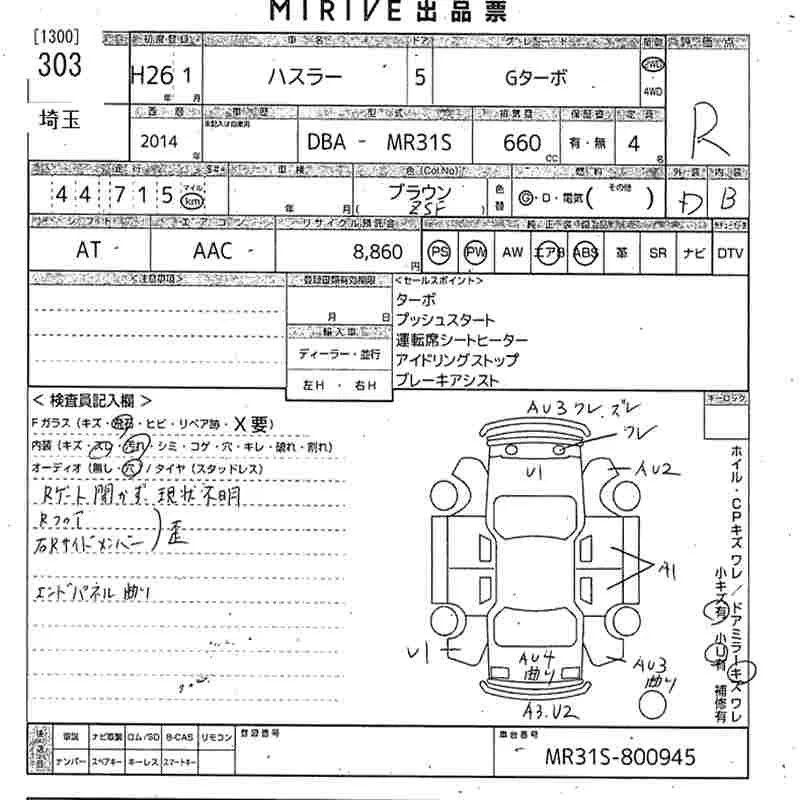 MIRIVE 出品票
[1300]
303
埼玉
初度登録 車名 ドア グレード 評価点
H26 1 ハスラー 5 Gターボ 2WD
年 月 4WD
R
西暦 車歴 型式 排気量 保証書 定員
2014 年 DBA - MR31S 660 CC 有・無 4 名
走行 車検 色(Col No) 燃料 外装 内装
44,715 マイル km 年 月 ブラウン ZSF 色替 G・D・電気( その他 ) D B
シフト エアコン リサイクル預託金
AT AAC 8,860 円 PS PW AW エアB ABS 革 SR ナビ DTV
<注意事項> 登録書類有効期限 <セールスポイント>
月 日
ターボ
プッシュスタート
輸入車
運転席シートヒーター
ディーラー・並行
アイドリングストップ
左H ・ 右H
ブレーキアシスト
キーロック
< 検査員記入欄 >
Fガラス (キズ・飛石・ヒビ・リペア跡・X要)
内装 (キズ・スレ・汚れ・シミ・コゲ・穴・キレ・破れ・割れ)
オーディオ (無し・穴) / タイヤ (スタッドレス)
Rゲート開かず 現状不明
Rフロア
右Rサイドメンバー 歪
エンドパネル 曲り
AU3 ワレ、ズレ
ワレ
U1
AU2
A1
U1
AU4
曲り
AU3
曲り
A3、U2
ホイル・CPキズワレ/ドアミラーキズワレ
小キズ有 小U有 補修有
後送品
取説 ナビ取説 ロム/SD B-CAS リモコン 登録番号 車台番号
ナンバー スペアキー キーレス スマートキー
MR31S-800945